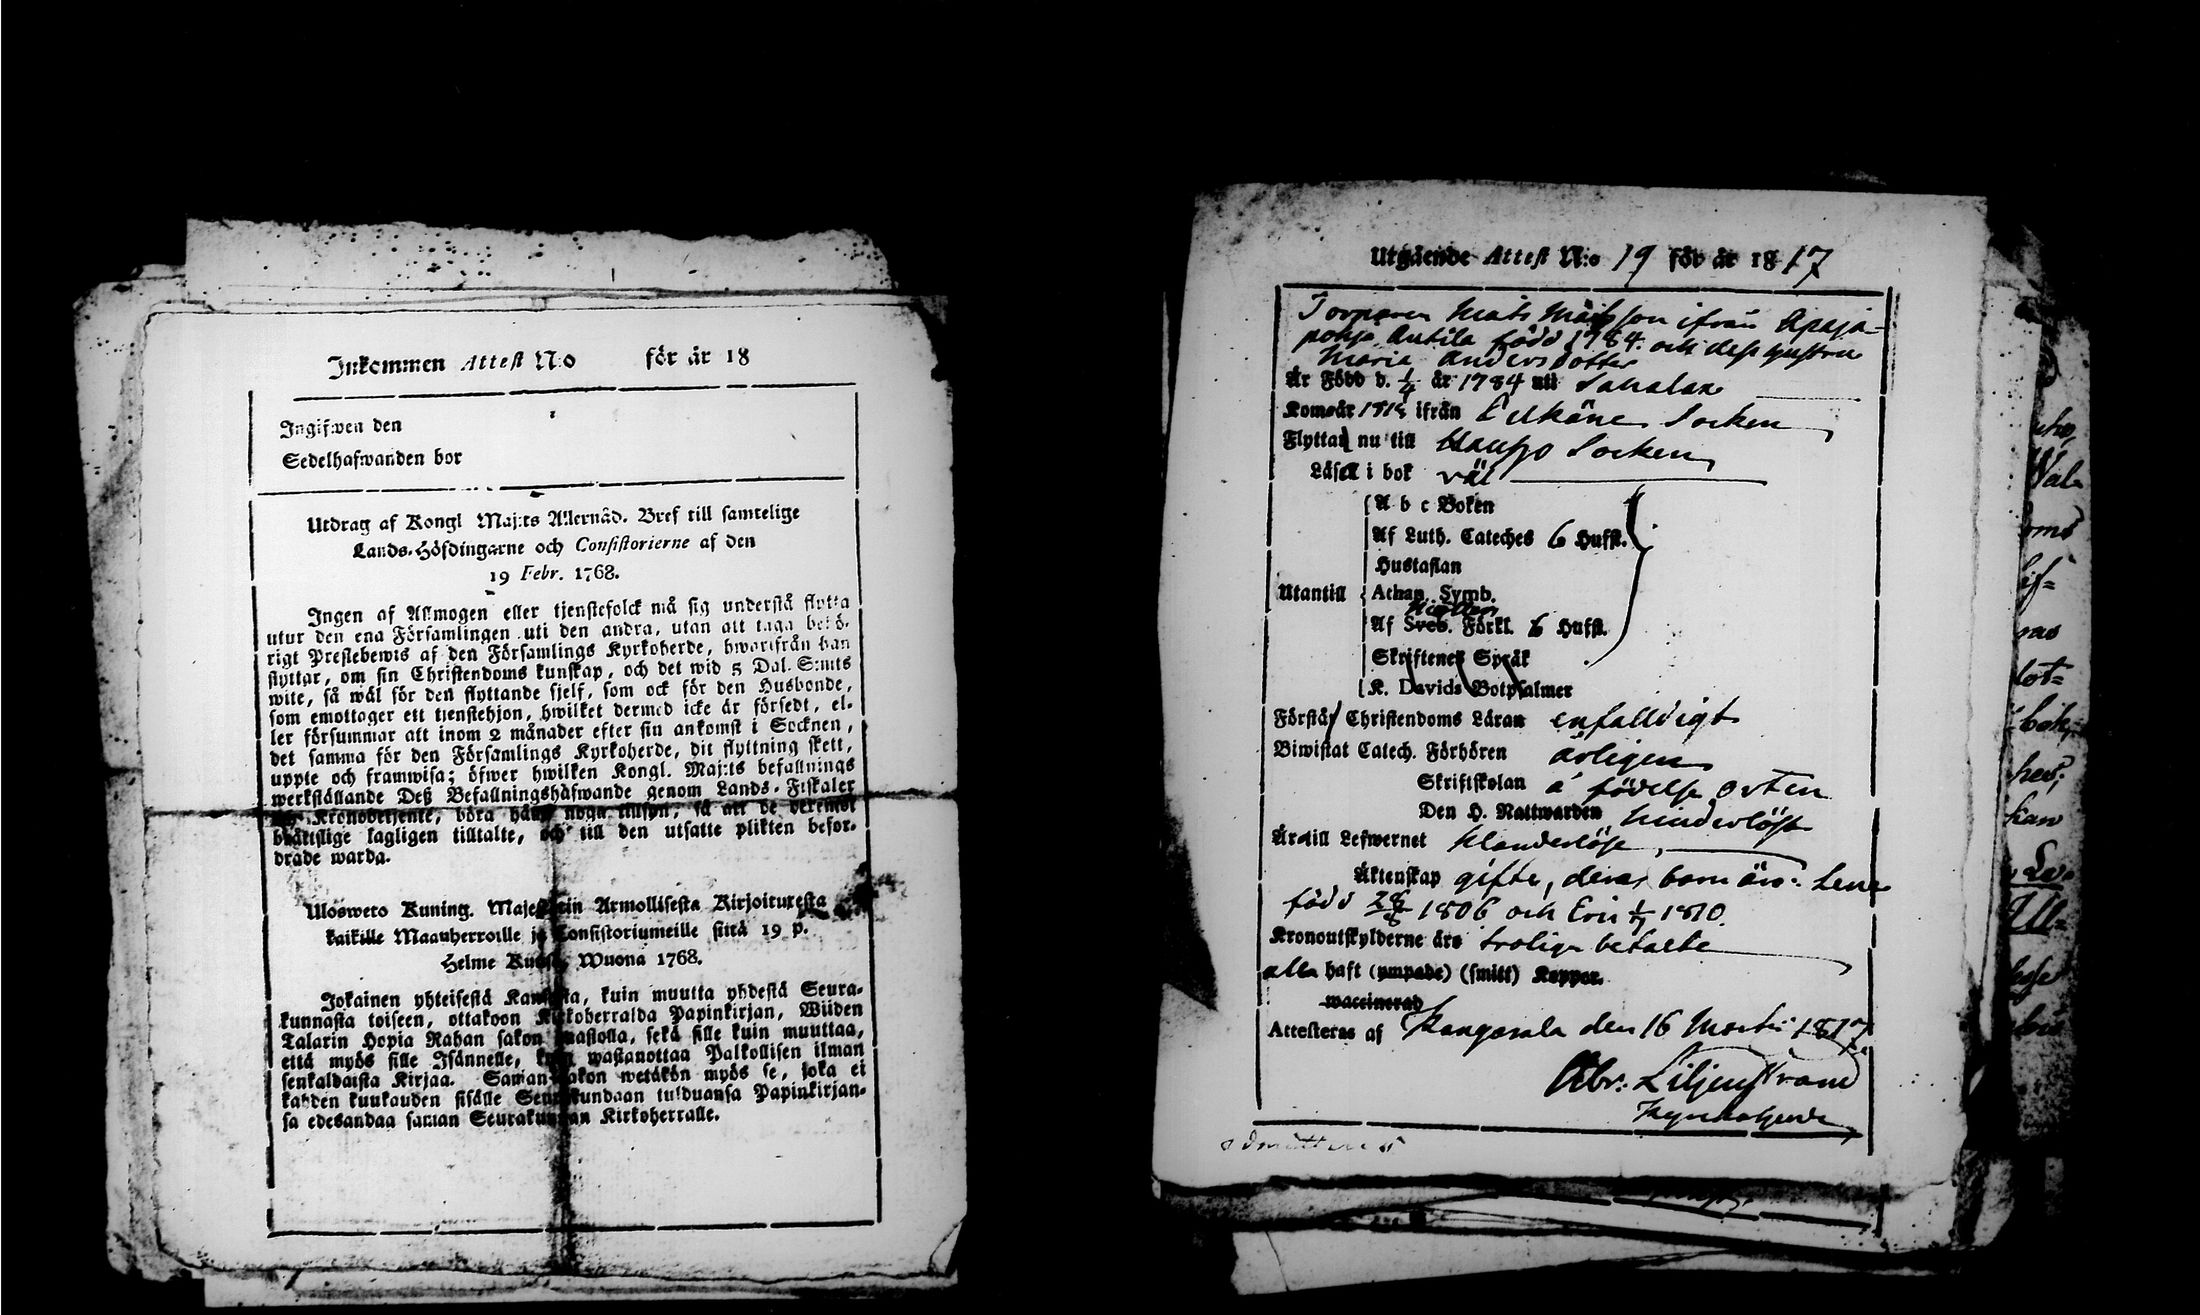 Inkommen Attest N:o för år 18
Ingifwen den
Sedelhafwanden bor
Utdrag af Kongl Maj:ts Allernåd. Bref till samtelige
Lands-Höfdingarne och Consistorierne af den
19 Febr. 1768.
Ingen af Allmogen eller tjenstefolck må sig understå flytta
utur den ena Församlingen uti den andra, utan att taga behö-
rigt Prestebewis af den Församlings Kyrkoherde, hworifrån han
flyttar, om sin Christendoms kunskap, och det wid 5 Dal. S:mts
wite, så wäl för den flyttande sjelf, som ock för den Husbonde,
som emottager ett tjenstehjon, hwilket dermed icke är försedt, el-
ler försummar att inom 2 månader efter sin ankomst i Socknen,
det samma för den Församlings Kyrkoherde, dit flyttning skett,
uppte och framwisa; öfwer hwilken Kongl. Maj:ts befallnings
werkställande Deß Befallningshafwande genom Lands-Fiskaler
Kronobetjente, böra hafwa noga tillsyn, så att de
brättslige lagligen tilltalte, och till den utsatte plikten befor-
drade warda.
Ulosweto Kuning. Majestetin Armollisesta Kirjoituxesta
kaikille Maanherroille ja Consistoriumeille siitä 19 p.
Helme Kuusa, Wuona 1768.
Jokainen yhteisestä Kansasta, kuin muutta yhdestä Seura-
kunnasta toiseen, ottakoon Kirkoherralda Papinkirjan, Wiiden
Talarin Hopia Rahan sakon uhastolla, sekä sille kuin muuttaa,
että myös sille Isännelle, kuin wastanottaa Palkollisen ilman
senkaldaista Kirjaa. Saman sakon wetäkön myös se, joka ei
kahden kuukauden sisälle Seurakundaan tulduansa Papinkirjan-
sa edesandaa saman Seurakunnan Kirkoherralle.
Utgående Attest N:o 19 för år 1817
Torparen Mats Mattsson ifrån Apaja-
pohja Antila född 1784. och dess hustru
Maria Andersdotter
Är Född d. 1/4 år 1784 uti Sahalax
Kom år ifrån Lukäne Socken
Flyttar nu till Kaupo Socken
Läser i bok väl
A b c Boken
Af Luth. Cateches 6 Hufst.
Hustaflan
Utantill Athan. Symb.
Af Sveb. Förkl. 6 Hufst.
Skriftenes Språk
K. Davids Botpsalmer
Förstår Christendoms Läran enfalldigt
Biwistat Catech. Förhören årligen
Skriftskolan å födelse orten
Den H. Nattwarden hinderlöst
Är till Lefwernet klanderlöse,
Äktenskap gifte, deras barn äro: Lena
född 28/8 1806 och Eric 1/7 1810.
Kronoutskylderne äro troligen betalte
alla haft (ympade) (smitt) Koppor.
waccinerad
Attesteras af Kangasala den 16 Martii 1817.
Abr: Liljenstrand
Kyrkoherde